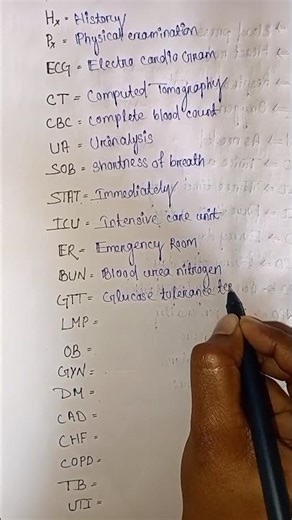 Hx = History
Px = Physical examination
ECG = Electro cardio Gram
CT = Computed Tomography
CBC = complete blood count
UA = Urinalysis
SOB = shortness of breath
STAT = Immediately
ICU = Intensive care unit
ER = Emergency Room
BUN = Blood urea nitrogen
GTT = Glucase tolerance tes
LMP =
OB =
GYN =
DM =
CAD =
CHF =
COPD =
TB =
UTI =